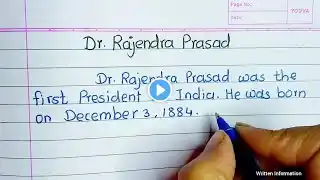 Page No:
Date:
YOUVA
Dr. Rajendra Prasad
Dr. Rajendra Prasad was the
first President India. He was born
on December 3, 1884.
Written Information